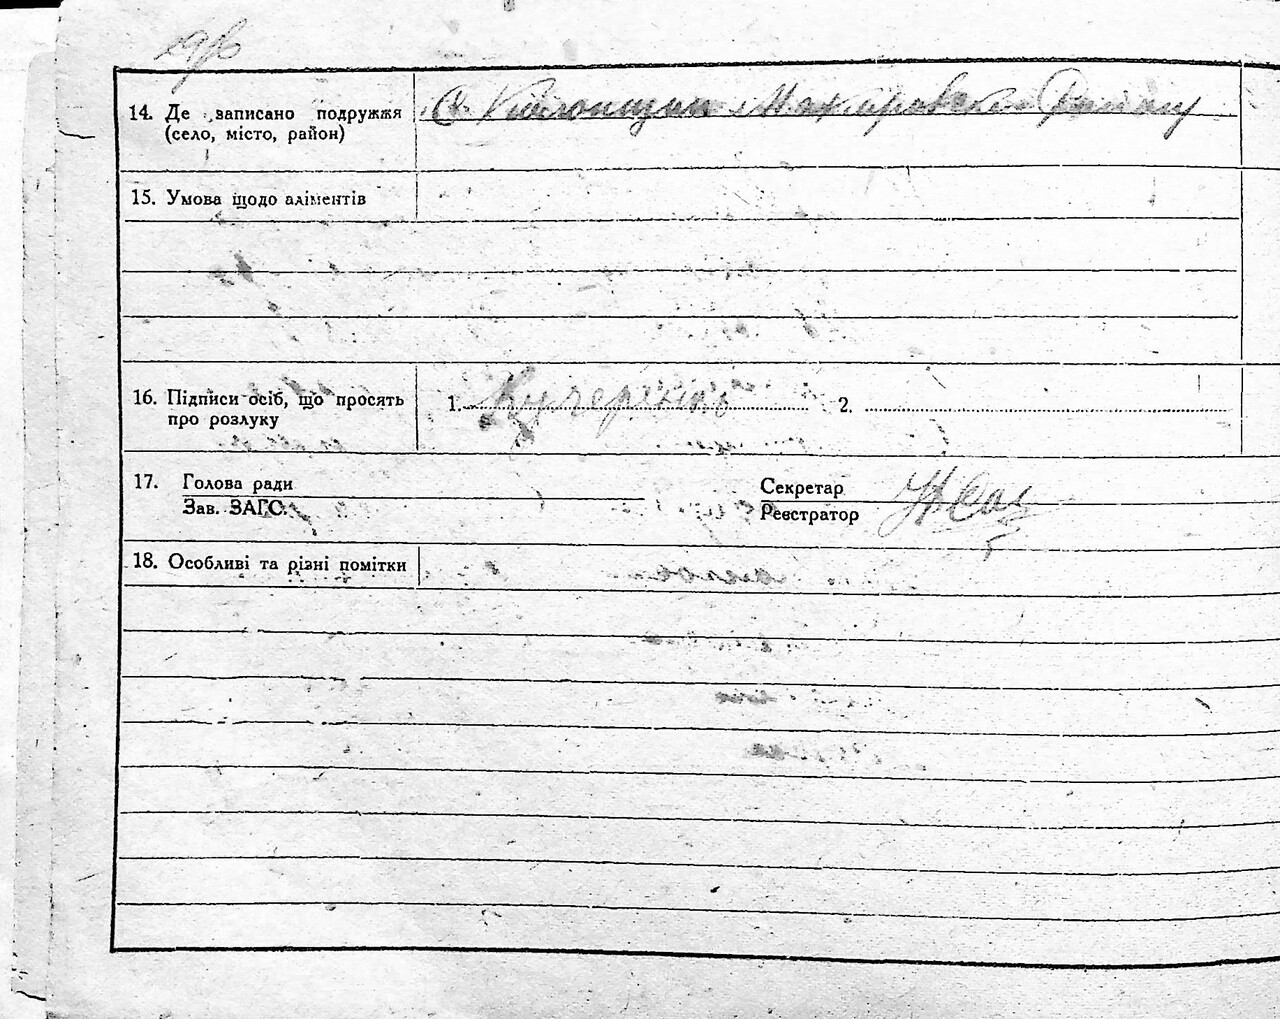 14. Де записано подружжя
(село, місто, район)
С. Макаровск Району
15. Умова щодо аліментів
16. Підписи осіб, що просять
про розлуку
1. Кучеренко 2.
17. Голова ради
Зав. ЗАГС.
Секретар
Реєстратор
18. Особливі та різні помітки